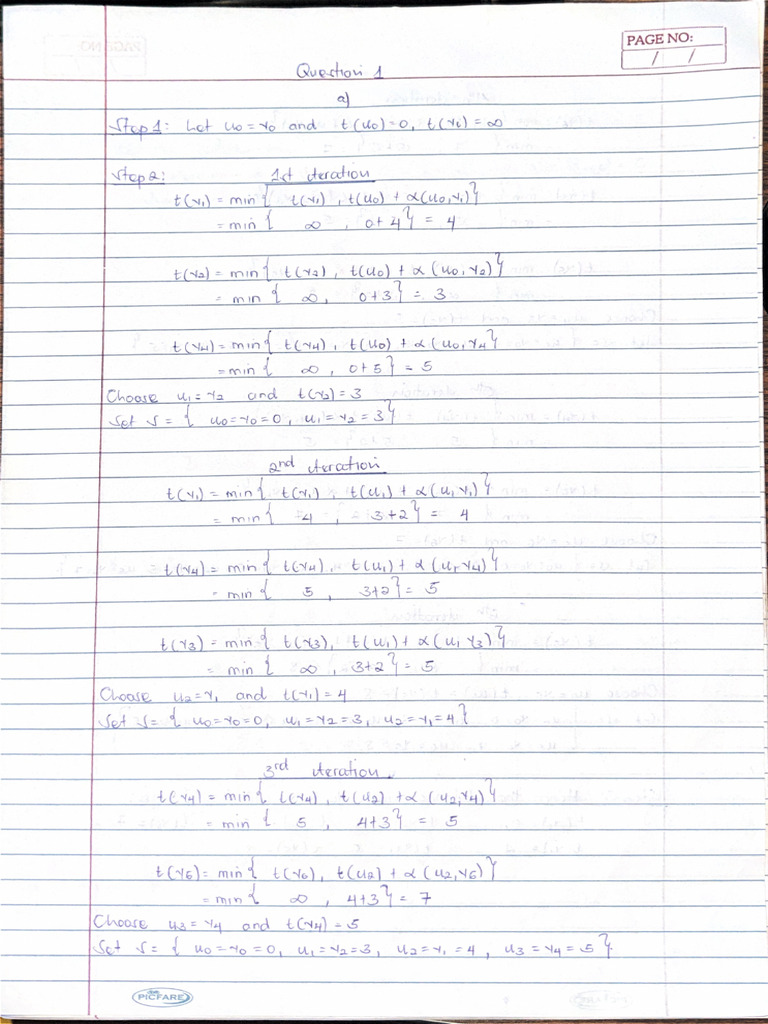 PAGE NO:
/ /
Question 1
a)
Step 1: Let u0 = v0 and t(u0) = 0, t(vi) = ∞
Step 2: 1st iteration
t(v1) = min{ t(v1), t(u0) + α(u0,v1)}
= min { ∞ , 0+4} = 4
t(v2) = min{ t(v2), t(u0) + α(u0, v2)}
= min { ∞, 0+3} = 3
t(v4) = min{ t(v4), t(u0) + α(u0, v4}
= min { ∞ , 0+5} = 5
Choose u1 = v2 and t(v2) = 3
Set S = { u0 = v0 = 0, u1 = v2 = 3}
2nd iteration
t(v1) = min{ t(v1), t(u1) + α(u1 v1)}
= min{ 4 , 3+2} = 4
t(v4) = min{ t(v4), t(u1) + α(u1, v4)}
= min { 5 , 3+2} = 5
t(v3) = min{ t(v3), t(u1) + α(u1 v3)}
= min { ∞ , 3+2} = 5
Choose u2 = v1 and t(v1) = 4
Set S = { u0 = v0 = 0, u1 = v2 = 3, u2 = v1 = 4}
3rd iteration
t(v4) = min{ t(v4), t(u2) + α(u2,v4)}
= min { 5 , 4+3} = 5
t(v6) = min{ t(v6), t(u2) + α(u2,v6)}
= min { ∞ , 4+3} = 7
Choose u3 = v4 and t(v4) = 5
Set S = { u0 = v0 = 0, u1 = v2 = 3, u2 = v1 = 4, u3 = v4 = 5}
PICFARE